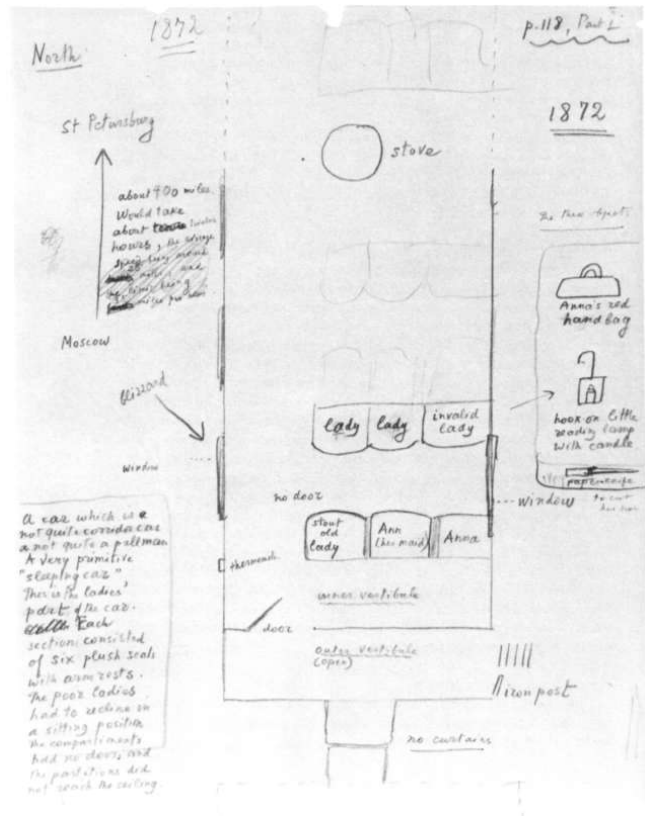 1872
p.118, Part 1
North
St Petersburg
1872
stove
about 400 miles.
Would take
about twelve
hours, the average
Moscow
The three objects
Anna's red
handbag
hook-on little
reading lamp
with candle
paperknife
to cut
blizzard
window
lady
lady
invalid
lady
no door
window
stout
old
lady
Ann
(her maid)
Anna
inner vestibule
door
outer vestibule
(open)
iron post
no curtains
A car which is a
not quite corridor car
a not quite a pullman
A very primitive
"sleeping car",
This is the ladies'
part of the car.
Each
section consisted
of six plush seats
with armrests.
The poor ladies
had to recline in
a sitting position
The compartments
had no door, and
the partitions did
not reach the ceiling.